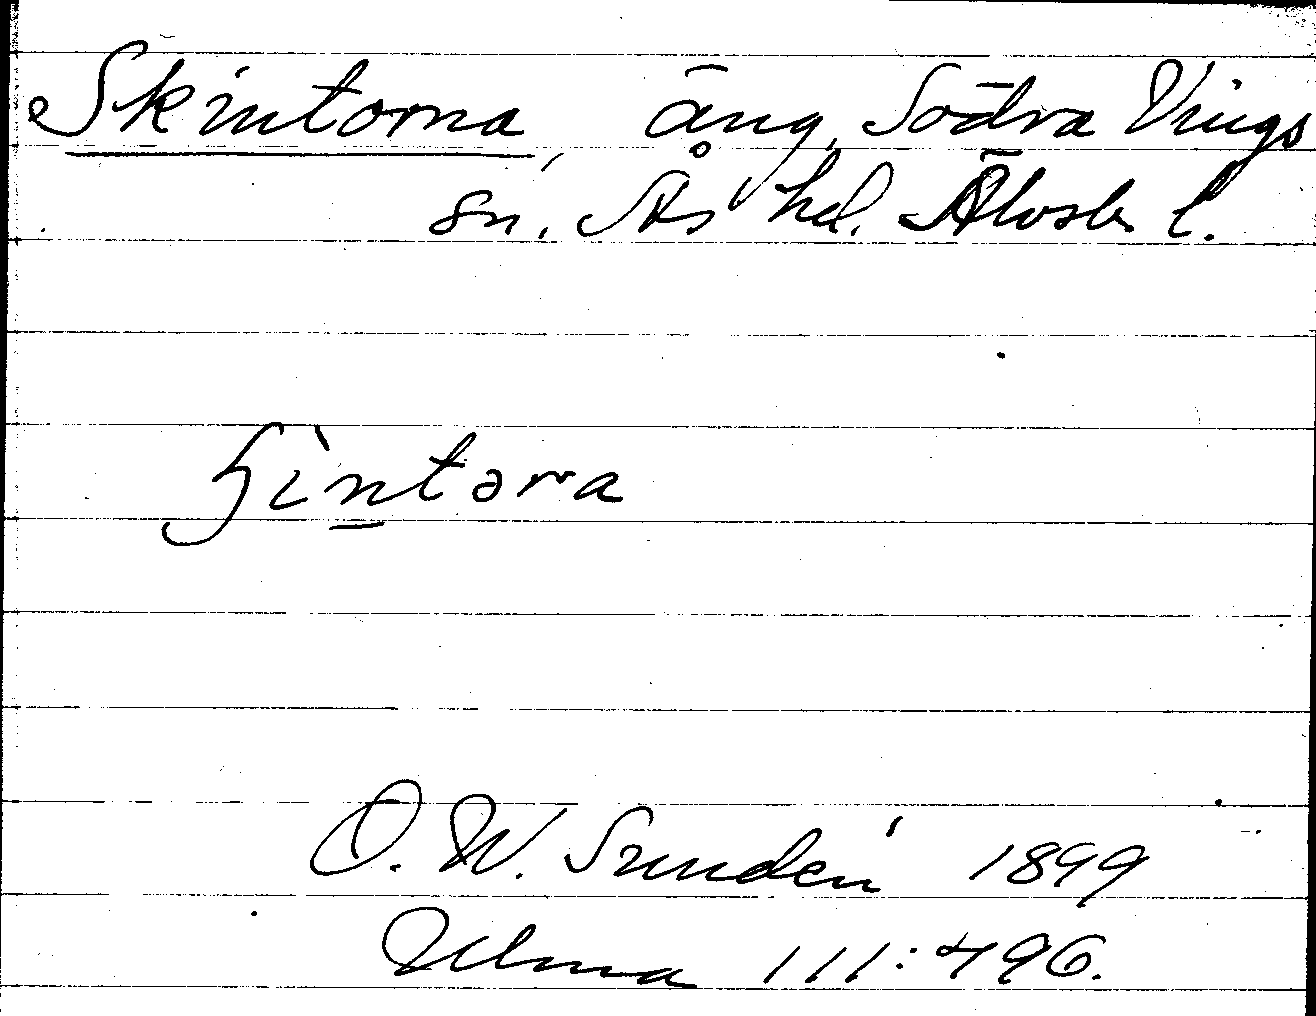 Skintorna, äng, Södra Vings
sn. Ås hd. Älvsb. l.
ɧìn̲təra
O. W. Sundén 1899
Ulma 111:496.